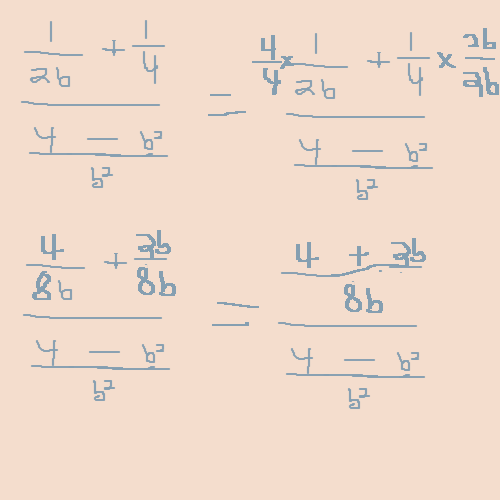 1/2b + 1/4 / 4 - b²/b² = 4/4 × 1/2b + 1/4 × 2b/2b / 4 - b²/b²
4/8b + 2b/8b / 4 - b²/b² = 4 + 2b/8b / 4 - b²/b²